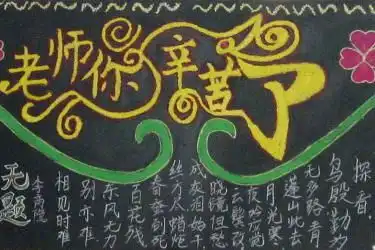 老师你辛苦了
无题
李商隐
相见时难
别亦难.
东风无力
百花残
春蚕到死
丝方尽蜡炬
成灰泪始干
晓镜但愁
云鬓改
夜吟应觉
月光寒
蓬山此去
无多路青
鸟殷勤
探看.